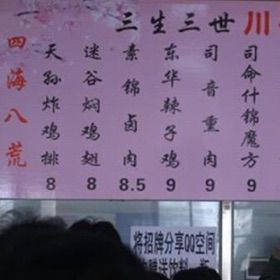 三生三世 川
四海八荒
天孙炸鸡排 8
迷谷焖鸡翅 8
素锦卤肉 8.5
东华辣子鸡 9
司音熏肉 9
司命什锦魔方 9
将招牌分享QQ空间